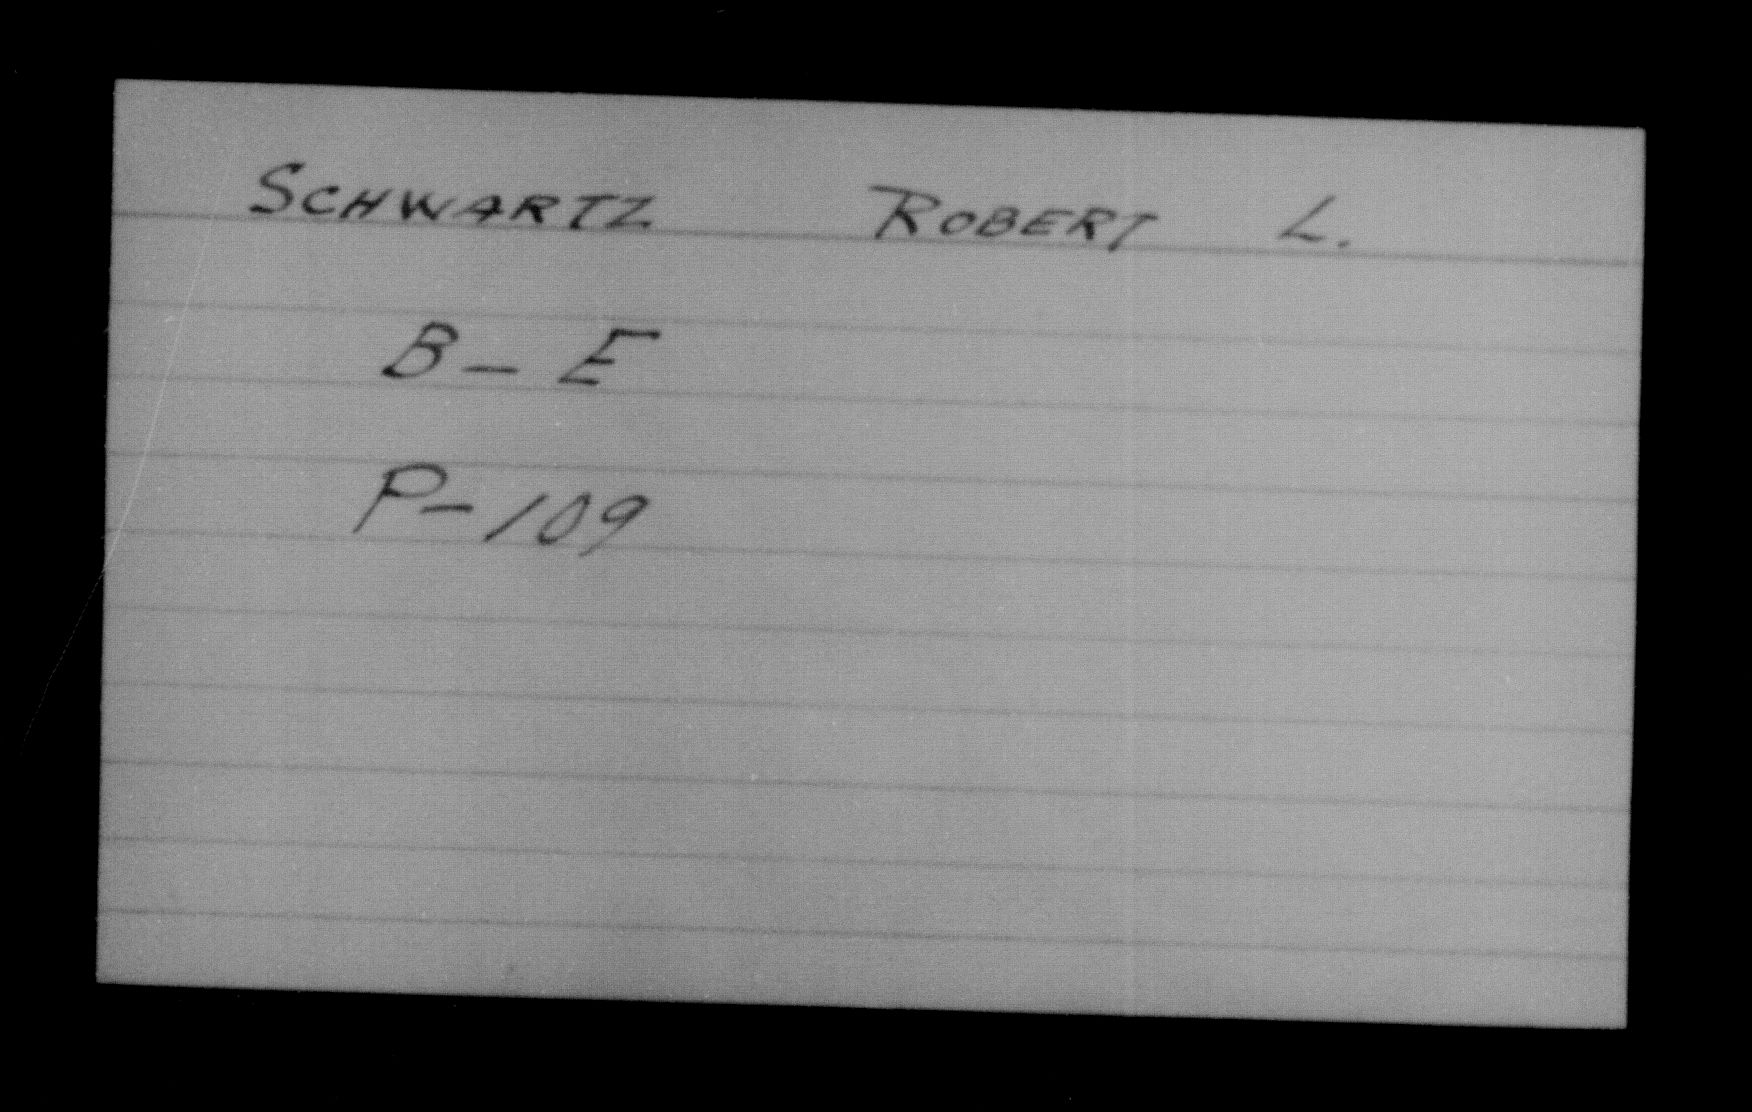 SCHWARTZ ROBERT L.
B - E
P-109